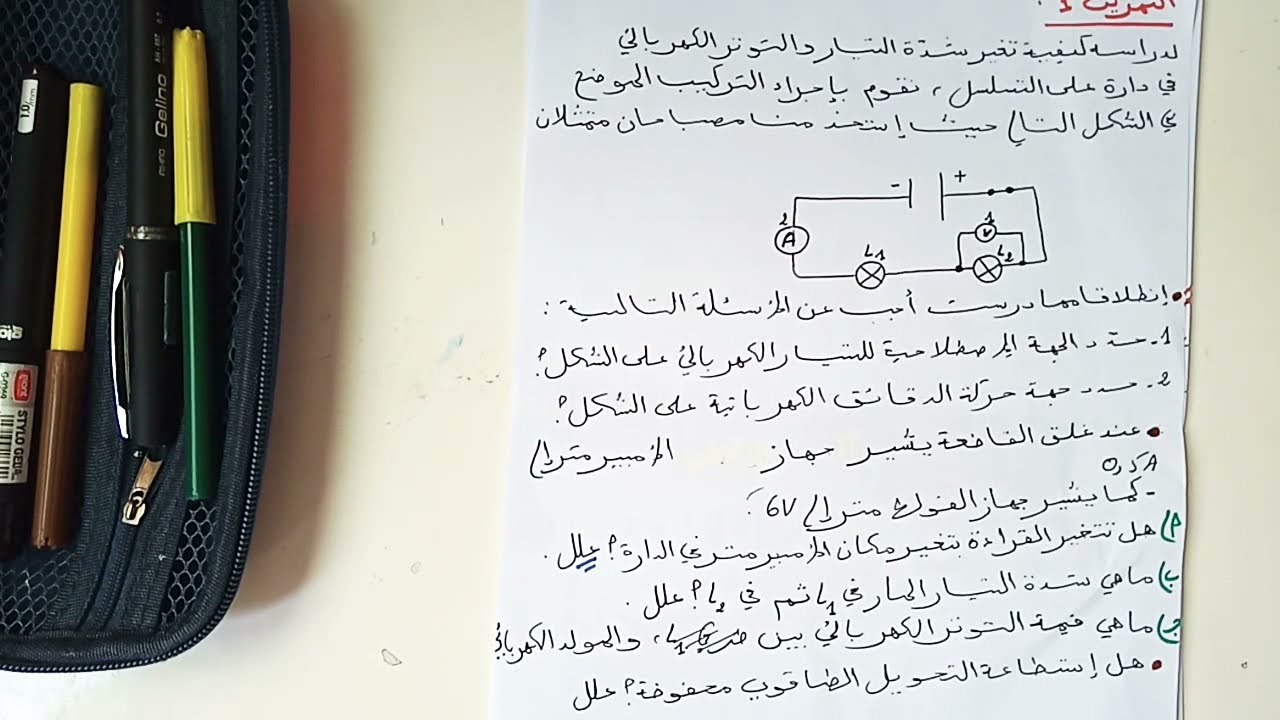 التمرين 1 :
لدراسة كيفية تغير شدة التيار والتوتر الكهربائي
في دارة على التسلسل، نقوم بإجراء التركيب الموضح
في الشكل التالي حيث إستخدمنا مصباحان متماثلان
- +
1
V
2
A
L1
L2
إنطلاقا مما درست أجب عن الأسئلة التالية :
1- حدد الجهة الإصطلاحية للتيار الكهربائي على الشكل؟
2- حدد جهة حركة الدقائق الكهربائية على الشكل؟
عند غلق القاطعة يشير جهاز الأمبير متر إلى
0,5 A
- كما يشير جهاز الفولط متر إلى 6V.
أ) هل تتغير القراءة بتغير مكان الأمبير متر في الدارة؟ علل.
ب) ماهي شدة التيار المار في L1 ثم في L2؟ علل.
ج) ماهي قيمة التوتر الكهربائي بين L1، والمولد الكهربائي
هل إستطاعة التحويل الطاقوي محفوظة؟ علل
Gelino
1.0mm
STYLO GEL